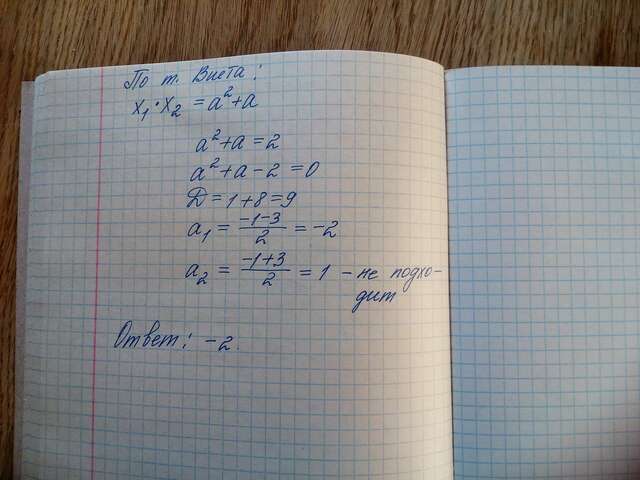 По т. Виета:
x₁·x₂ = a²+a
a²+a = 2
a²+a-2 = 0
D = 1+8 = 9
a₁ = (-1-3)/2 = -2
a₂ = (-1+3)/2 = 1 - не подхо-
дит
Ответ: -2.